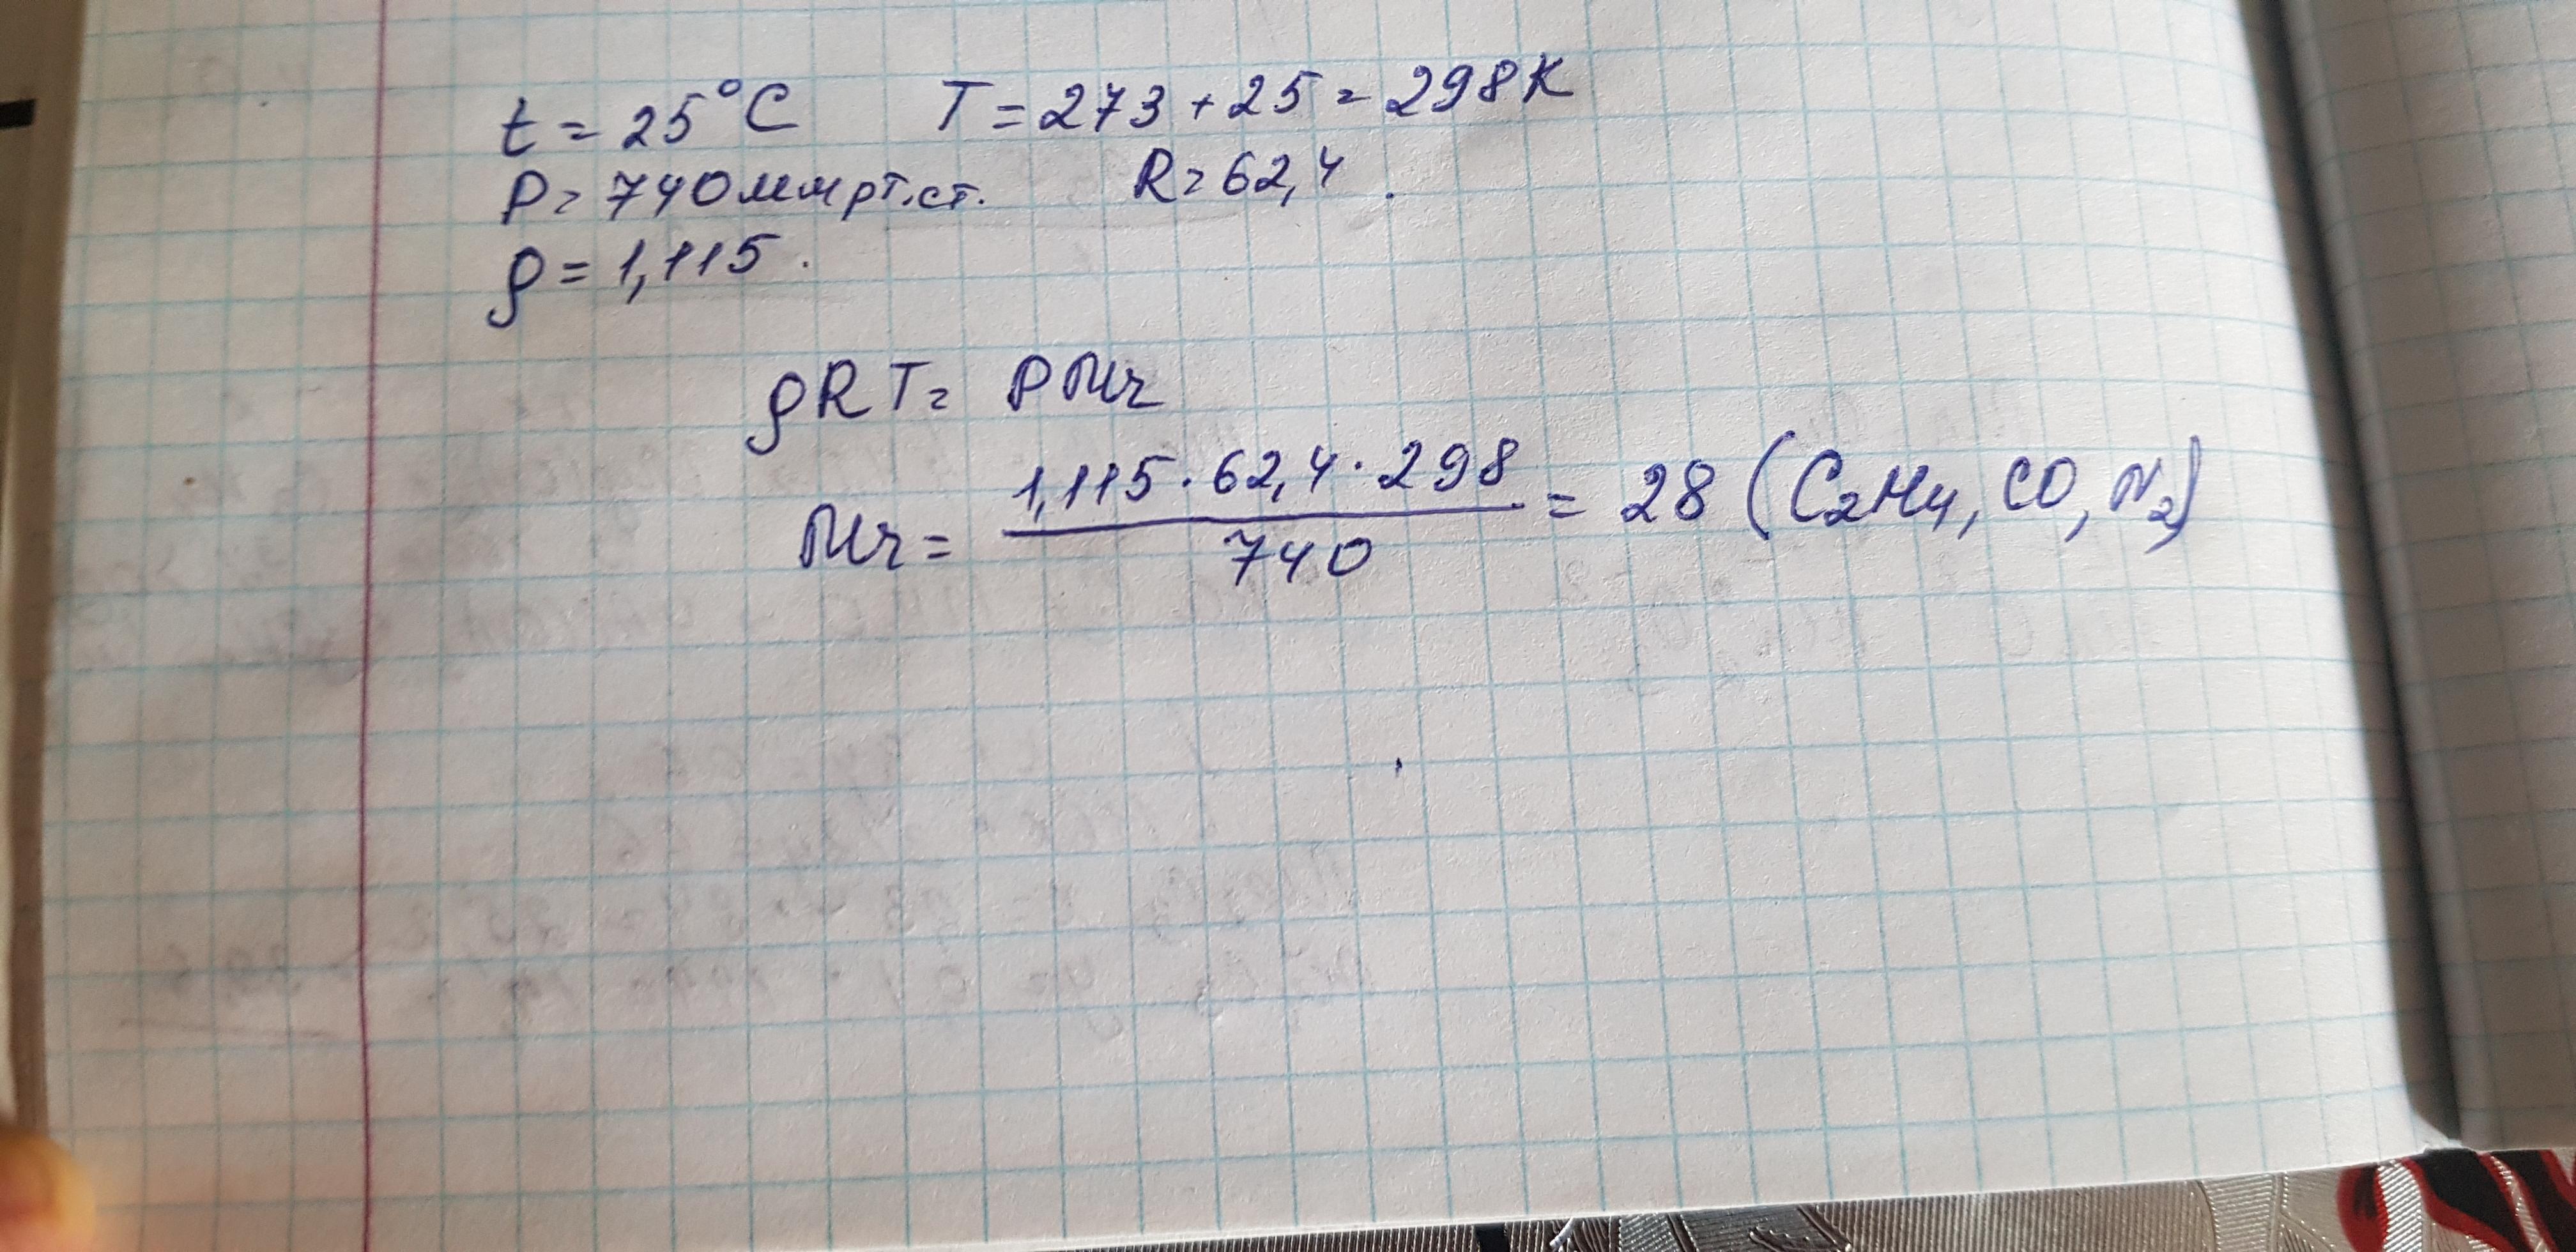 t = 25°C T = 273 + 25 = 298K
P = 740 мм рт.ст. R = 62,4.
ρ = 1,115.
ρRT = PMr
Mr = 1,115 · 62,4 · 298 / 740 = 28 (C₂H₄, CO, N₂)